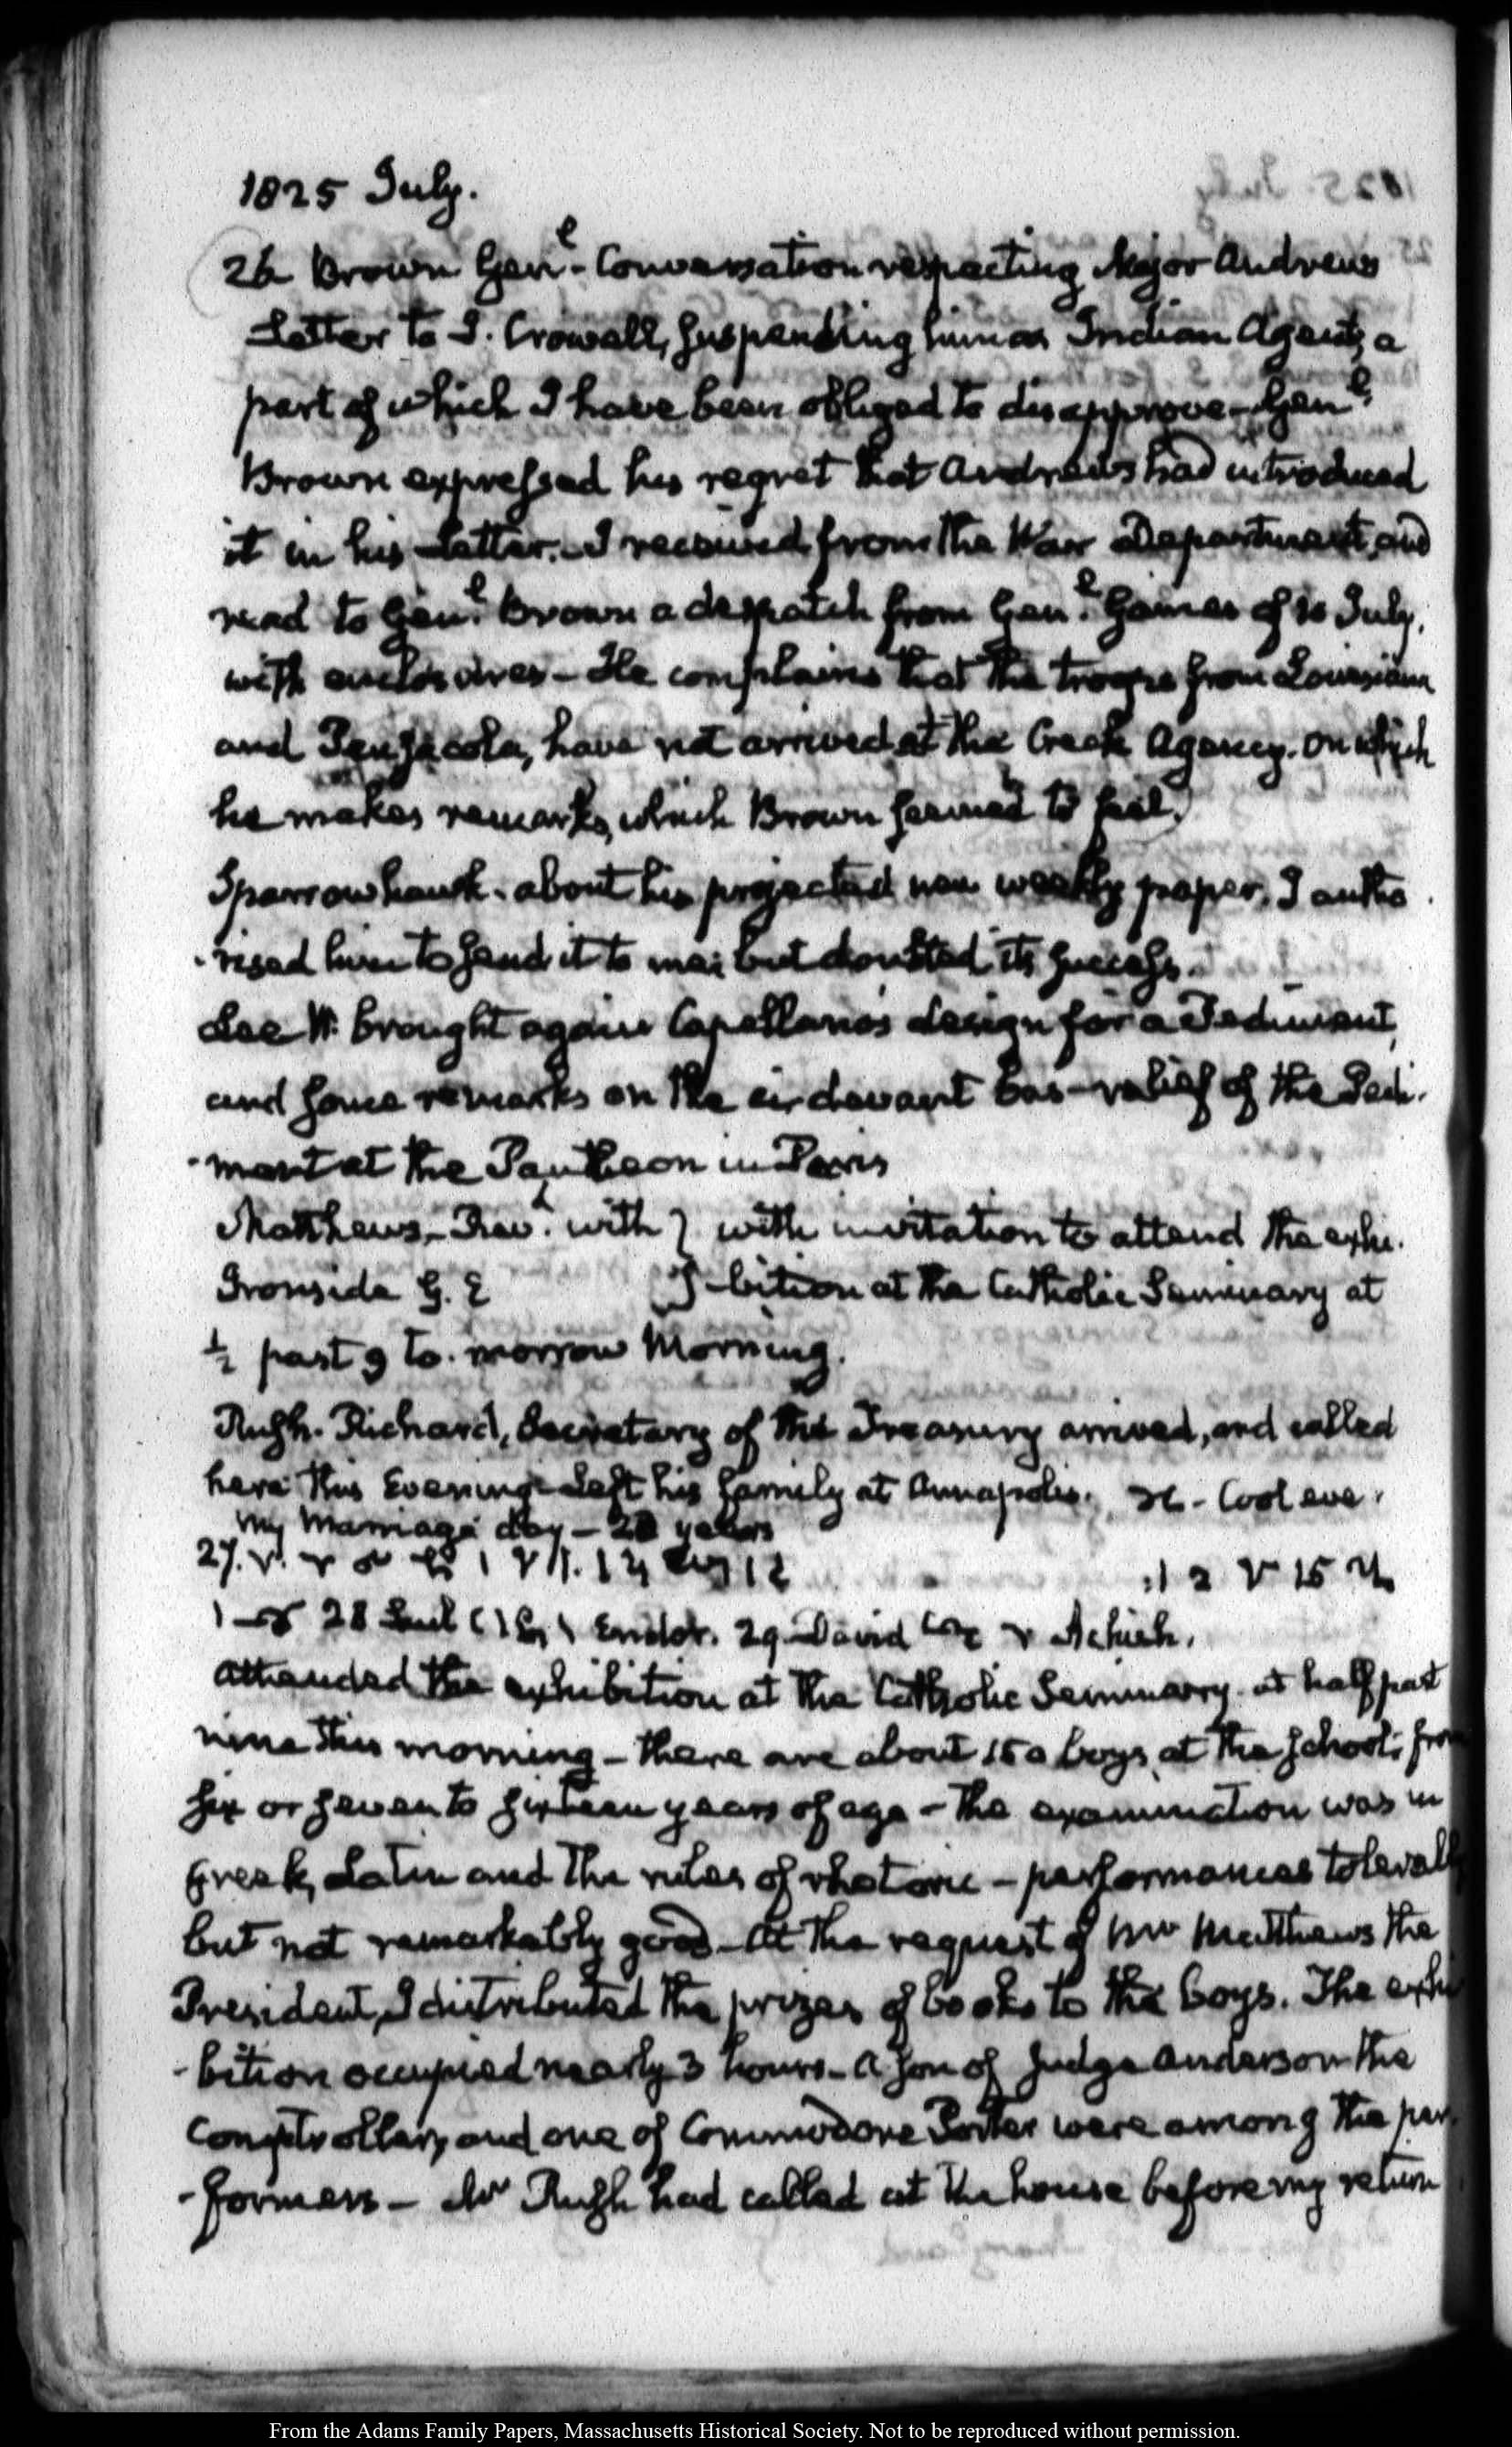 1825 July.
26 Brown Genl. - Conversation respecting Major Andrews
Letter to J. Crowell, suspending him as Indian Agent, a
part of which I have been obliged to disapprove - Genl.
Brown expressed his regret that Andrews had introduced
it in his Letter. - I received from the War Department, and
read to Genl. Brown a despatch from Genl. Gaines of 10 July,
with enclosures - He complains that the troops from Louisiana
and Pensacola, have not arrived at the Creek Agency. On which
he makes remarks, which Brown seemed to feel.
Sparrowhawk. about his projected new weekly paper. I autho
-rised him to send it to me; but doubted its success.
Lee W. brought again Capellano's design for a Pediment,
and some remarks on the ci-devant bas-relief of the Pedi.
-ment at the Pantheon in Paris
Matthews - Revd. with } with invitation to attend the exhi.
Ironside G. E } -bition at the Catholic Seminary at
½ past 9 to-morrow Morning.
Rush. Richard, Secretary of the Treasury arrived, and called
here this Evening - Left his family at Annapolis. Cool eve.
My Marriage day - 28 years
27. V.
28 Saul Endor. 29. David Achish.
attended the exhibition at the Catholic Seminary at half past
nine this morning - there are about 150 boys at the school, from
six or seven to sixteen years of age - The examination was in
Greek, Latin and the rules of rhetoric - performances
but not remarkably good - At the request of Mr Matthews the
President, I distributed the prizes of books to the boys. The exhi
-bition occupied nearly 3 hours - A son of Judge Anderson the
Comptroller, and one of Commodore Porter were among the per
-formers - Mr Rush had called at the house before my return